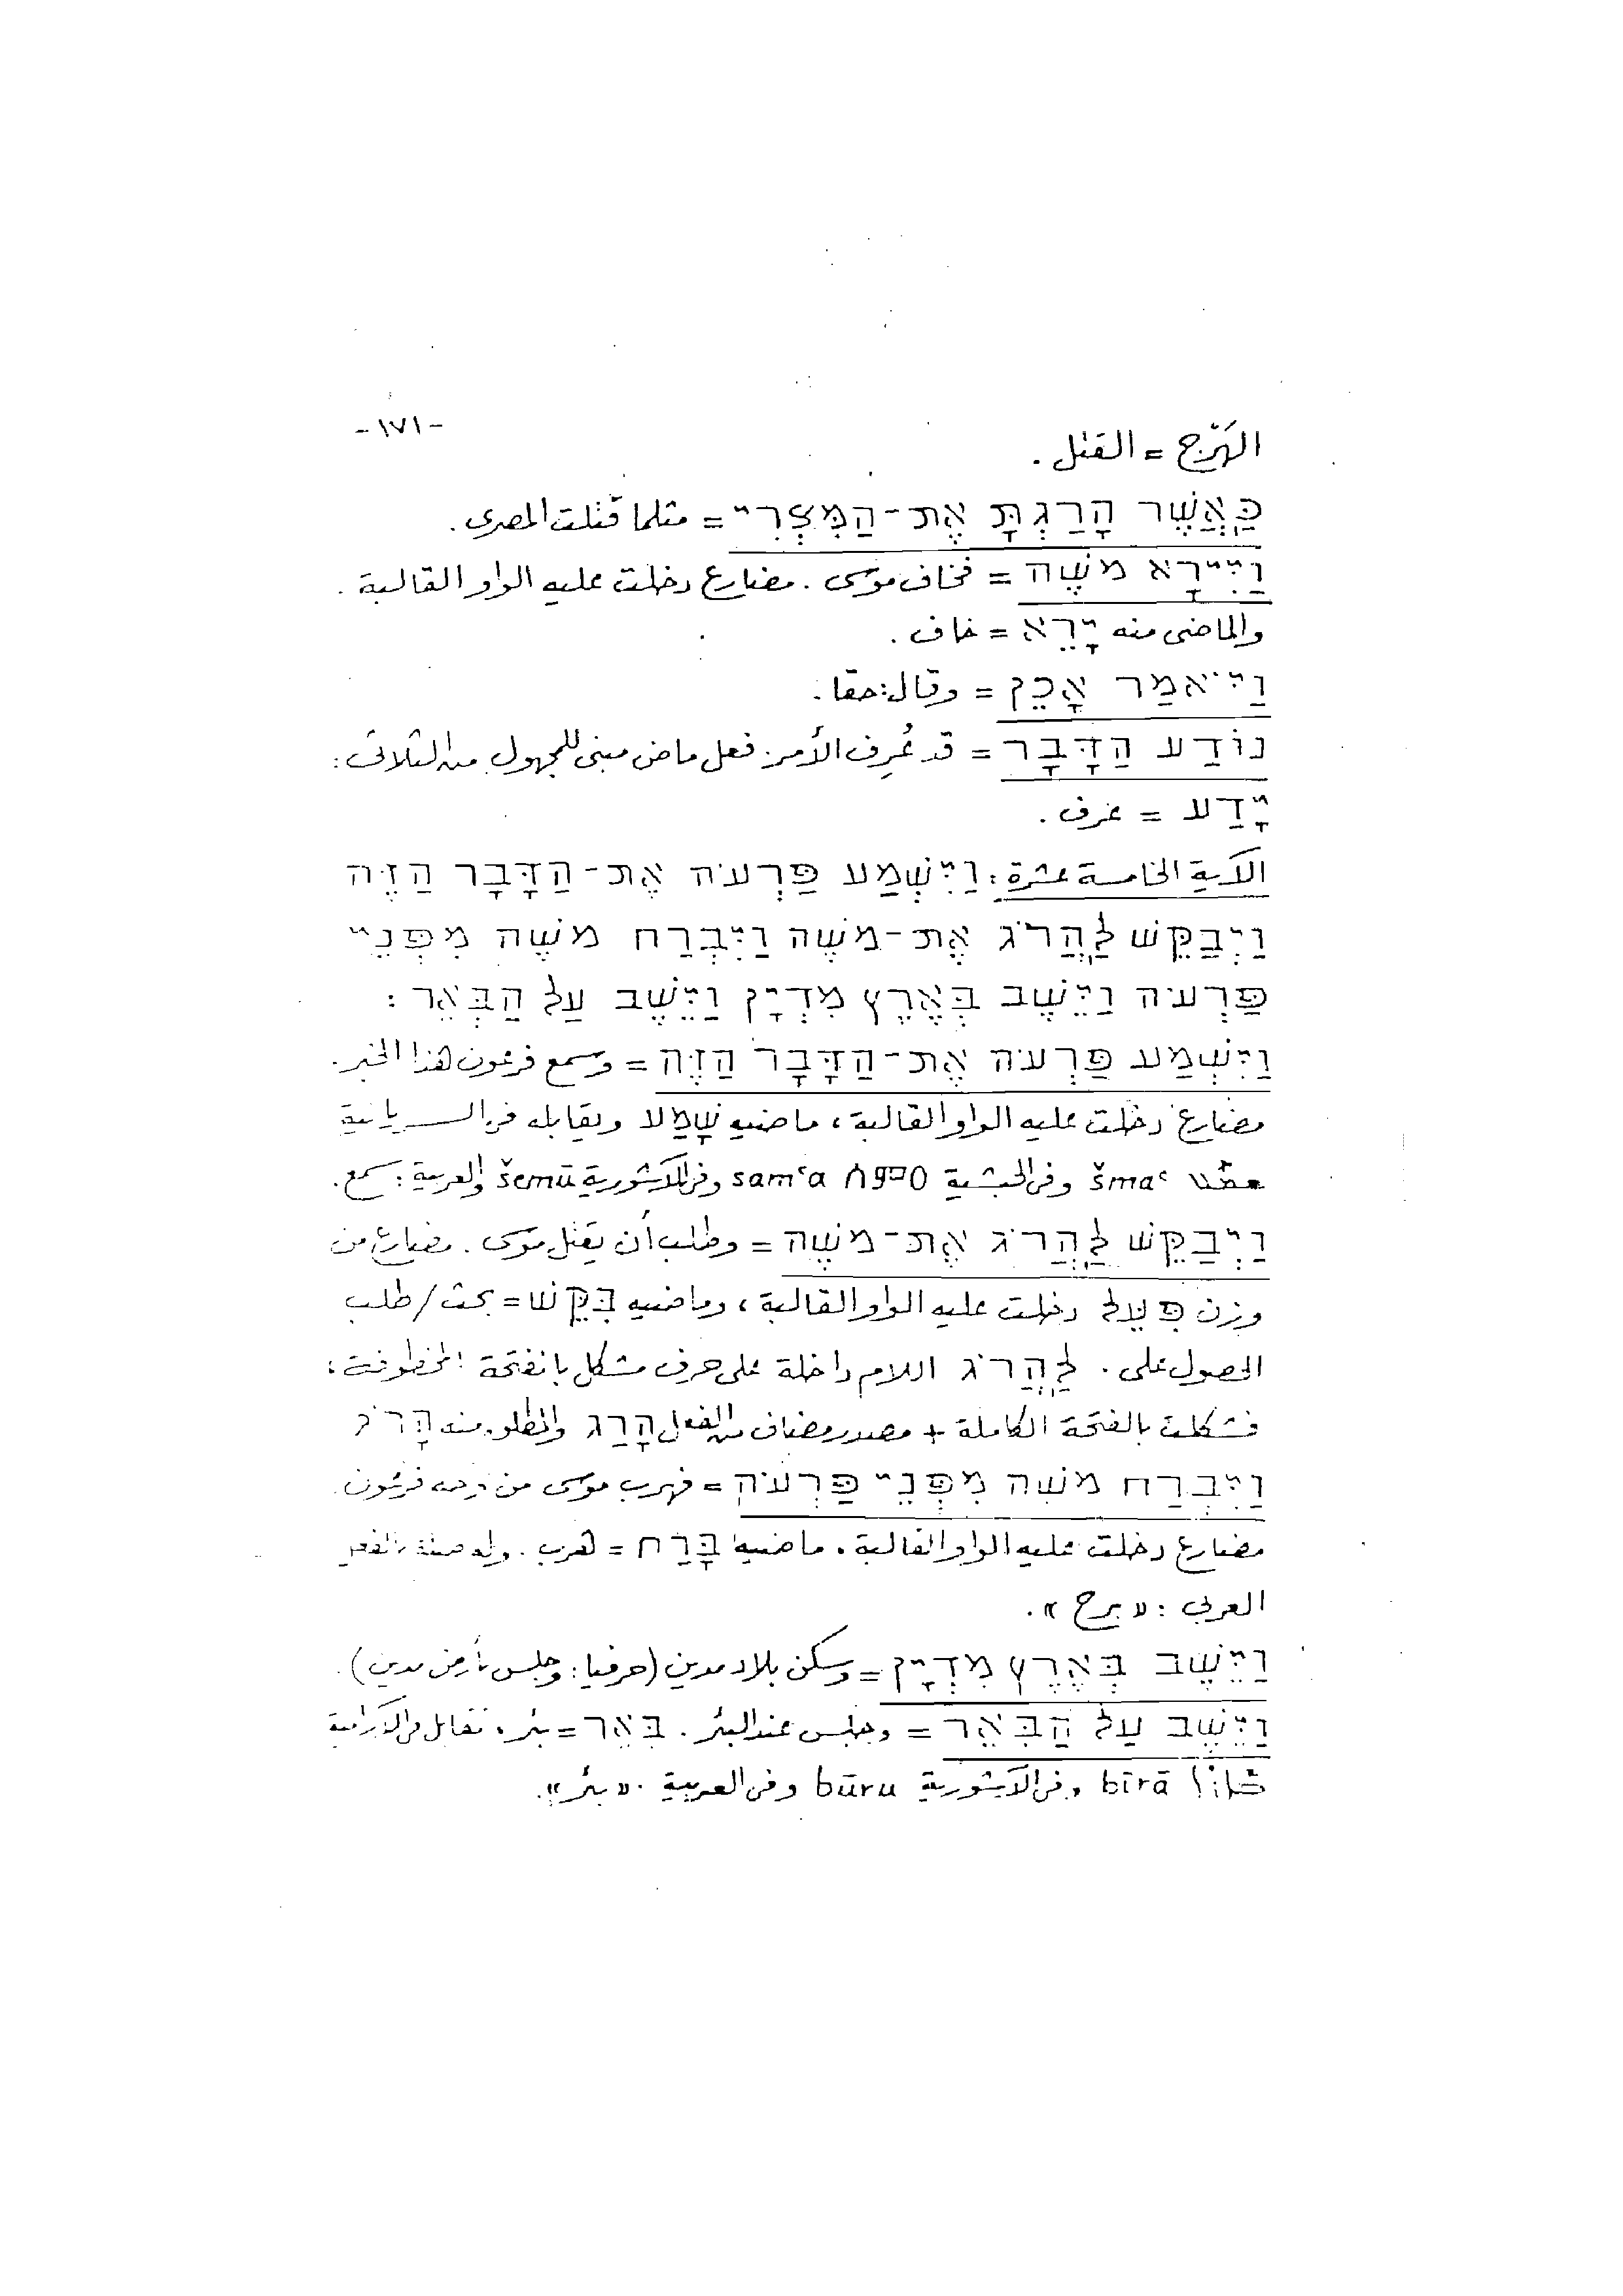 -١٧١-
الهَرْج = القتل .
כַּאֲשֶׁר הָרַגְתָּ אֶת-הַמִּצְרִי = مثلما قتلت المصرى .
וַיִּירָא מֹשֶׁה = فخاف موسى . مضارع دخلت عليه الواو القالبة .
والماضى منه יָרֵא = خاف .
וַיֹּאמַר אָכֵן = وقال: حقا .
נוֹדַע הַדָּבָר = قد عُرِف الأمر: فعل ماض مبنى للمجهول من الثلاثى :
יָדַע = عرف .
الآية الخامسة عشرة : וַיִּשְׁמַע פַּרְעֹה אֶת-הַדָּבָר הַזֶּה
וַיְבַקֵּשׁ לַהֲרֹג אֶת-מֹשֶׁה וַיִּבְרַח מֹשֶׁה מִפְּנֵי
פַּרְעֹה וַיֵּשֶׁב בְּאֶרֶץ מִדְיָן וַיֵּשֶׁב עַל הַבְּאֵר :
וַיִּשְׁמַע פַּרְעֹה אֶת-הַדָּבָר הַזֶּה = وسمع فرعون هذا الخبر .
مضارع دخلت عليه الواو القالبة ، ماضيه שָׁמַע ويقابله فى السريانية
ܫܡܥ šmaʿ وفى الحبشية ሰምዐ samʿa وفى الآشورية šemū والعربية : سمع .
וַיְבַקֵּשׁ לַהֲרֹג אֶת-מֹשֶׁה = وطلب أن يقتل موسى . مضارع من
وزن פִּעֵל دخلت عليه الواو القالبة ، وماضيه בִּקֵּשׁ = بحث / طلب
الحصول على . לַהֲרֹג اللام داخلة على حرف مشكل بالفتحة المخطوفة ،
فشكلت بالفتحة الكاملة + مصدر مضاف من الفعل הָרַג والمطلق منه הָרֹג
וַיִּבְרַח מֹשֶׁה מִפְּנֵי פַּרְעֹה = فهرب موسى من وجه فرعون .
مضارع دخلت عليه الواو القالبة ، ماضيه בָּרַח = هرب . وله صلة بالفعل
العربى : « برح » .
וַיֵּשֶׁב בְּאֶרֶץ מִדְיָן = وسكن بلاد مدين (حرفيا : وجلس بأرض مدين) .
וַיֵּשֶׁב עַל הַבְּאֵר = وجلس عند البئر . בְּאֵר = بئر ، تقابل فى الآرامية
ܒܐܪܐ bīrā وفى الآشورية būru وفى العربية « بئر » .